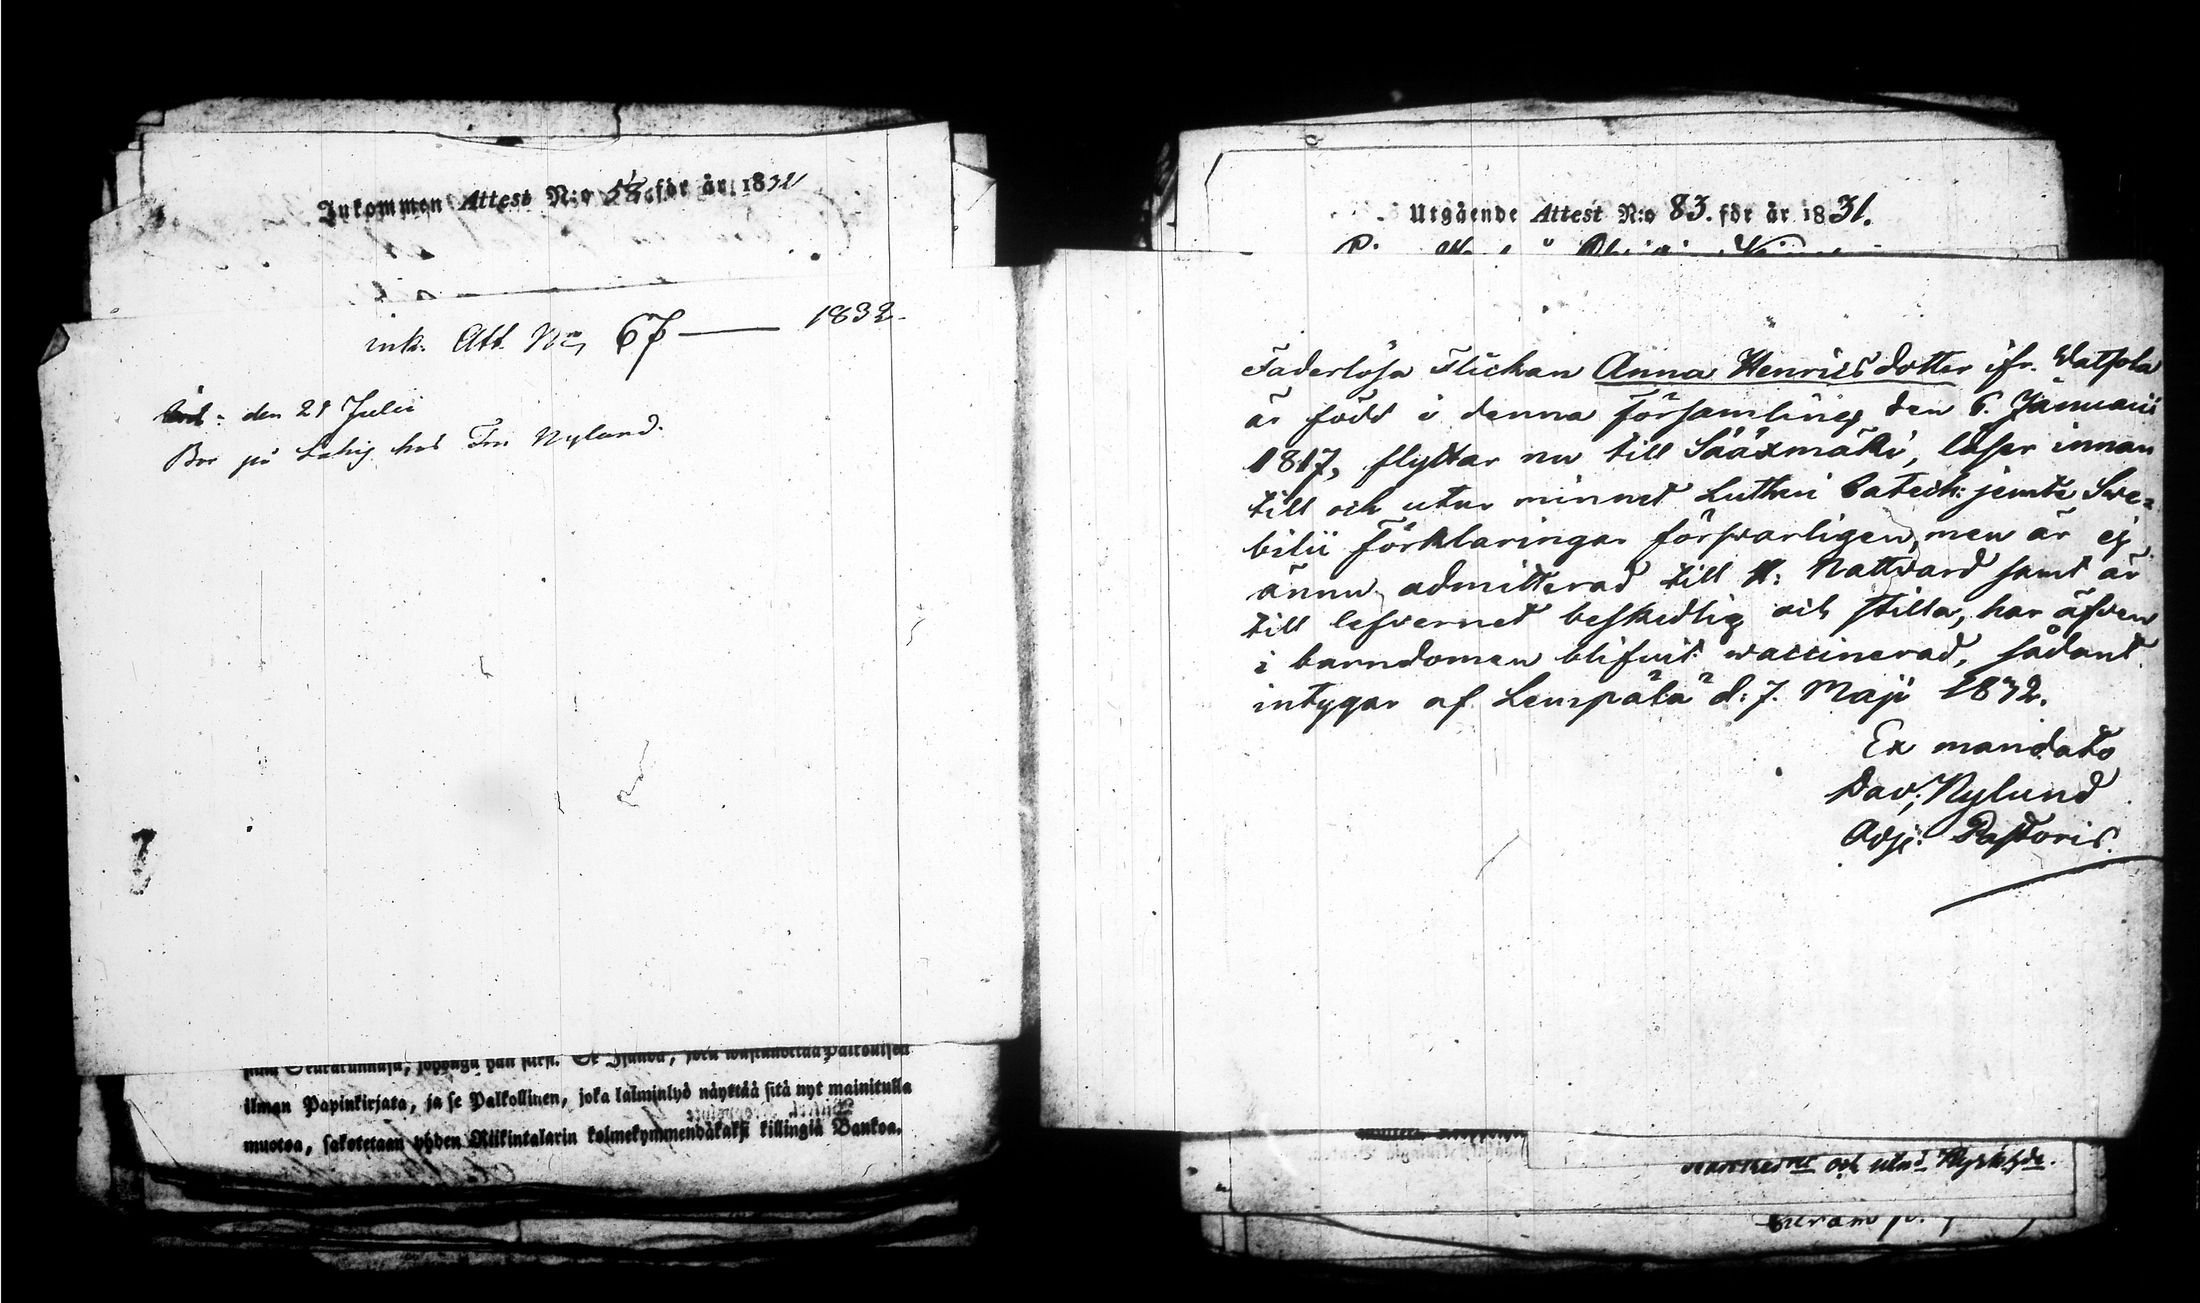 Inkommen Attest N:o 58 för år 1831
ink. Att. No 67 — 1832.
den 21 Julii
Bor på Lahis hos Fru Nylund.
ilman Papinkirjata, ja se Palkollinen, joka laiminlyö näyttää sitä nyt mainitulla
muotoa, sakotetaan yhden Riikintalarin kolmekymmendäkaksi killingiä Bankoa.
Utgående Attest N:o 83. för år 1831.
Faderlösa Flickan Anna Henricsdotter ifr.
är född i denna Församling den 6. Januarii
1817, flyttar nu till Sääxmäki, läser innan
till och utur minnet Lutheri Catech: jemte Swe=
bilii Förklaringar försvarligen, men är ej
ännu admitterad till H: Nattvard samt är
till lefvernet beskedlig och stilla, har äfven
i barndomen blifvit vaccinerad, sådant
intygar af Lempälä d: 7. Maji 1832.
Ex mandato
Dav: Nylund
Adj: Pastoris.
och utur